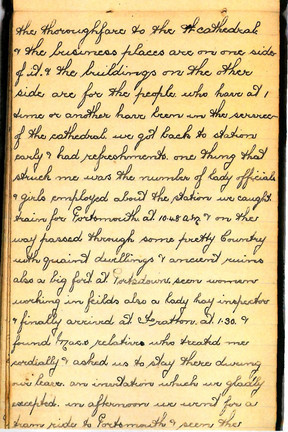 the thoroughfare to the cathedral
& the business places are on one side
of it. & the buildings on the other
side are for the people who have at 1
time or another have been in the service
of the cathedral. we got back to station
early & had refreshments. one thing that
struck me was the number of lady officials
& girls employed about the station we caught
train for Portsmouth at 10.48 & on the
way passed through some pretty Country
with quaint dwellings & ancient ruins
also a big fort at Portsdown seen woman
working in feilds also a lady hay inspector
& finally arrived at Stratton. at 1.30. &
found relatives who treated me
cordially & asked us to stay there during
our leave. an invitation which we gladly
excepted. in afternoon we went for a
tram ride to Portsmouth & seen the